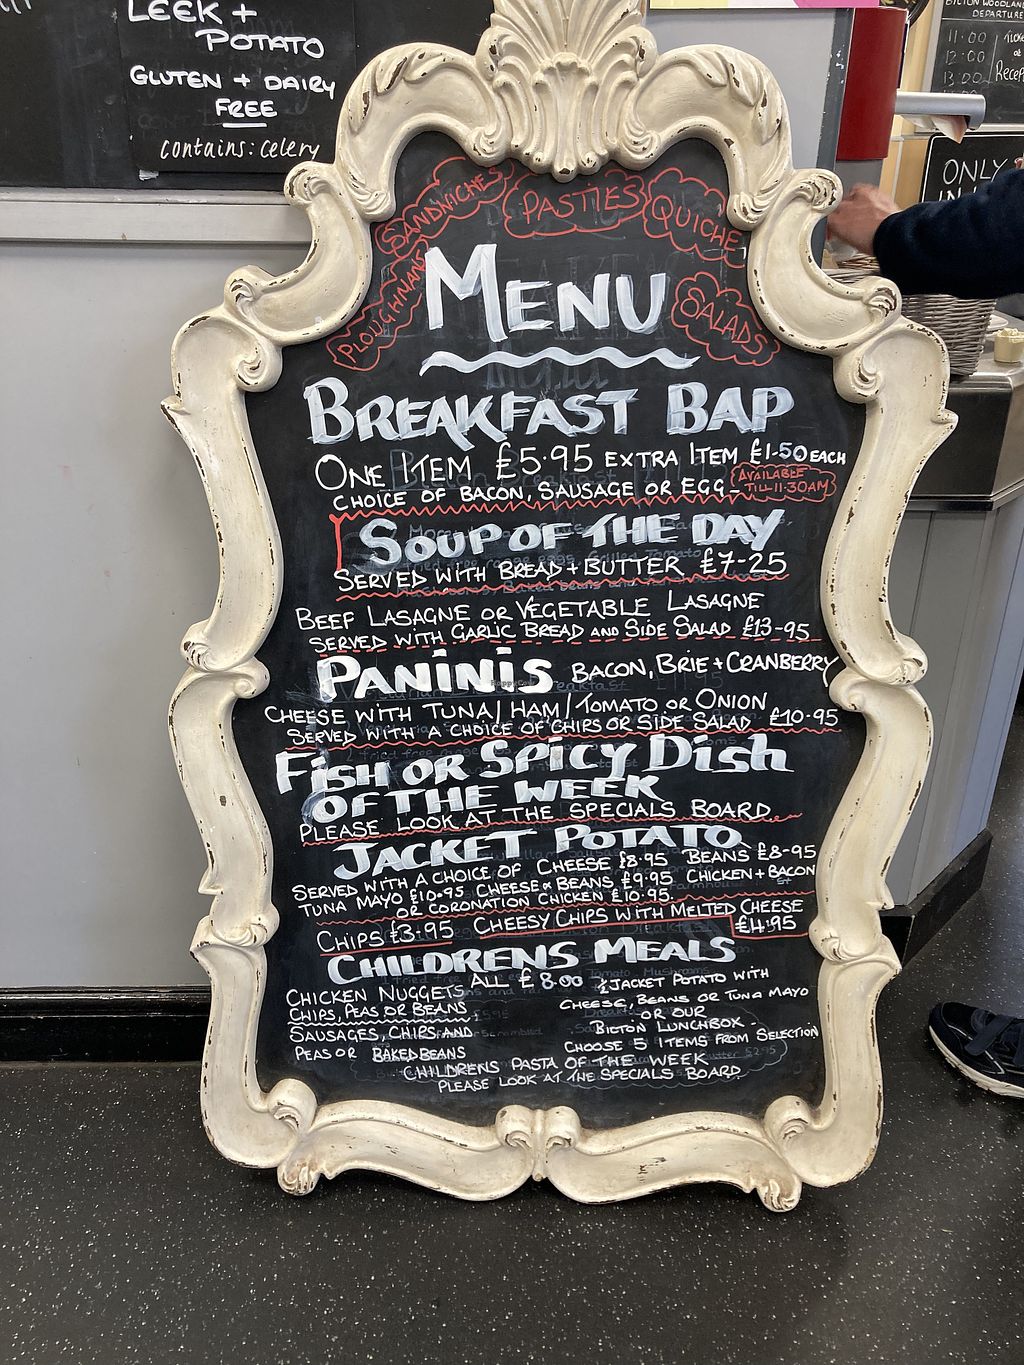 LEEK +
POTATO
GLUTEN + DAIRY
FREE
contains: celery
BILTON WOODLAND
DEPARTURE
11:00
12:00
13:00
ONLY
SANDWICHES
PASTIES
QUICHE
PLOUGHMANS
SALADS
MENU
BREAKFAST BAP
ONE ITEM £5.95 EXTRA ITEM £1.50 EACH
CHOICE OF BACON, SAUSAGE OR EGG -
AVAILABLE
TILL 11.30AM
SOUP OF THE DAY
SERVED WITH BREAD + BUTTER £7-25
BEEF LASAGNE OR VEGETABLE LASAGNE
SERVED WITH GARLIC BREAD AND SIDE SALAD £13-95
PANINIS BACON, BRIE + CRANBERRY
CHEESE WITH TUNA/HAM/TOMATO OR ONION
SERVED WITH A CHOICE OF CHIPS OR SIDE SALAD £10-95
FISH OR SPICY DISH
OF THE WEEK
PLEASE LOOK AT THE SPECIALS BOARD.
JACKET POTATO
SERVED WITH A CHOICE OF CHEESE £8.95 BEANS £8-95
TUNA MAYO £10.95 CHEESE & BEANS £9.95 CHICKEN + BACON
OR CORONATION CHICKEN £10.95.
CHIPS £3.95 CHEESY CHIPS WITH MELTED CHEESE
£4.95
CHILDRENS MEALS
ALL £8.00
CHICKEN NUGGETS
CHIPS, PEAS OR BEANS
SAUSAGES, CHIPS AND
PEAS OR BAKED BEANS
JACKET POTATO WITH
CHEESE, BEANS OR TUNA MAYO
- OR OUR
BILTON LUNCHBOX -
CHOOSE 5 ITEMS FROM SELECTION
CHILDRENS PASTA OF THE WEEK
PLEASE LOOK AT THE SPECIALS BOARD.